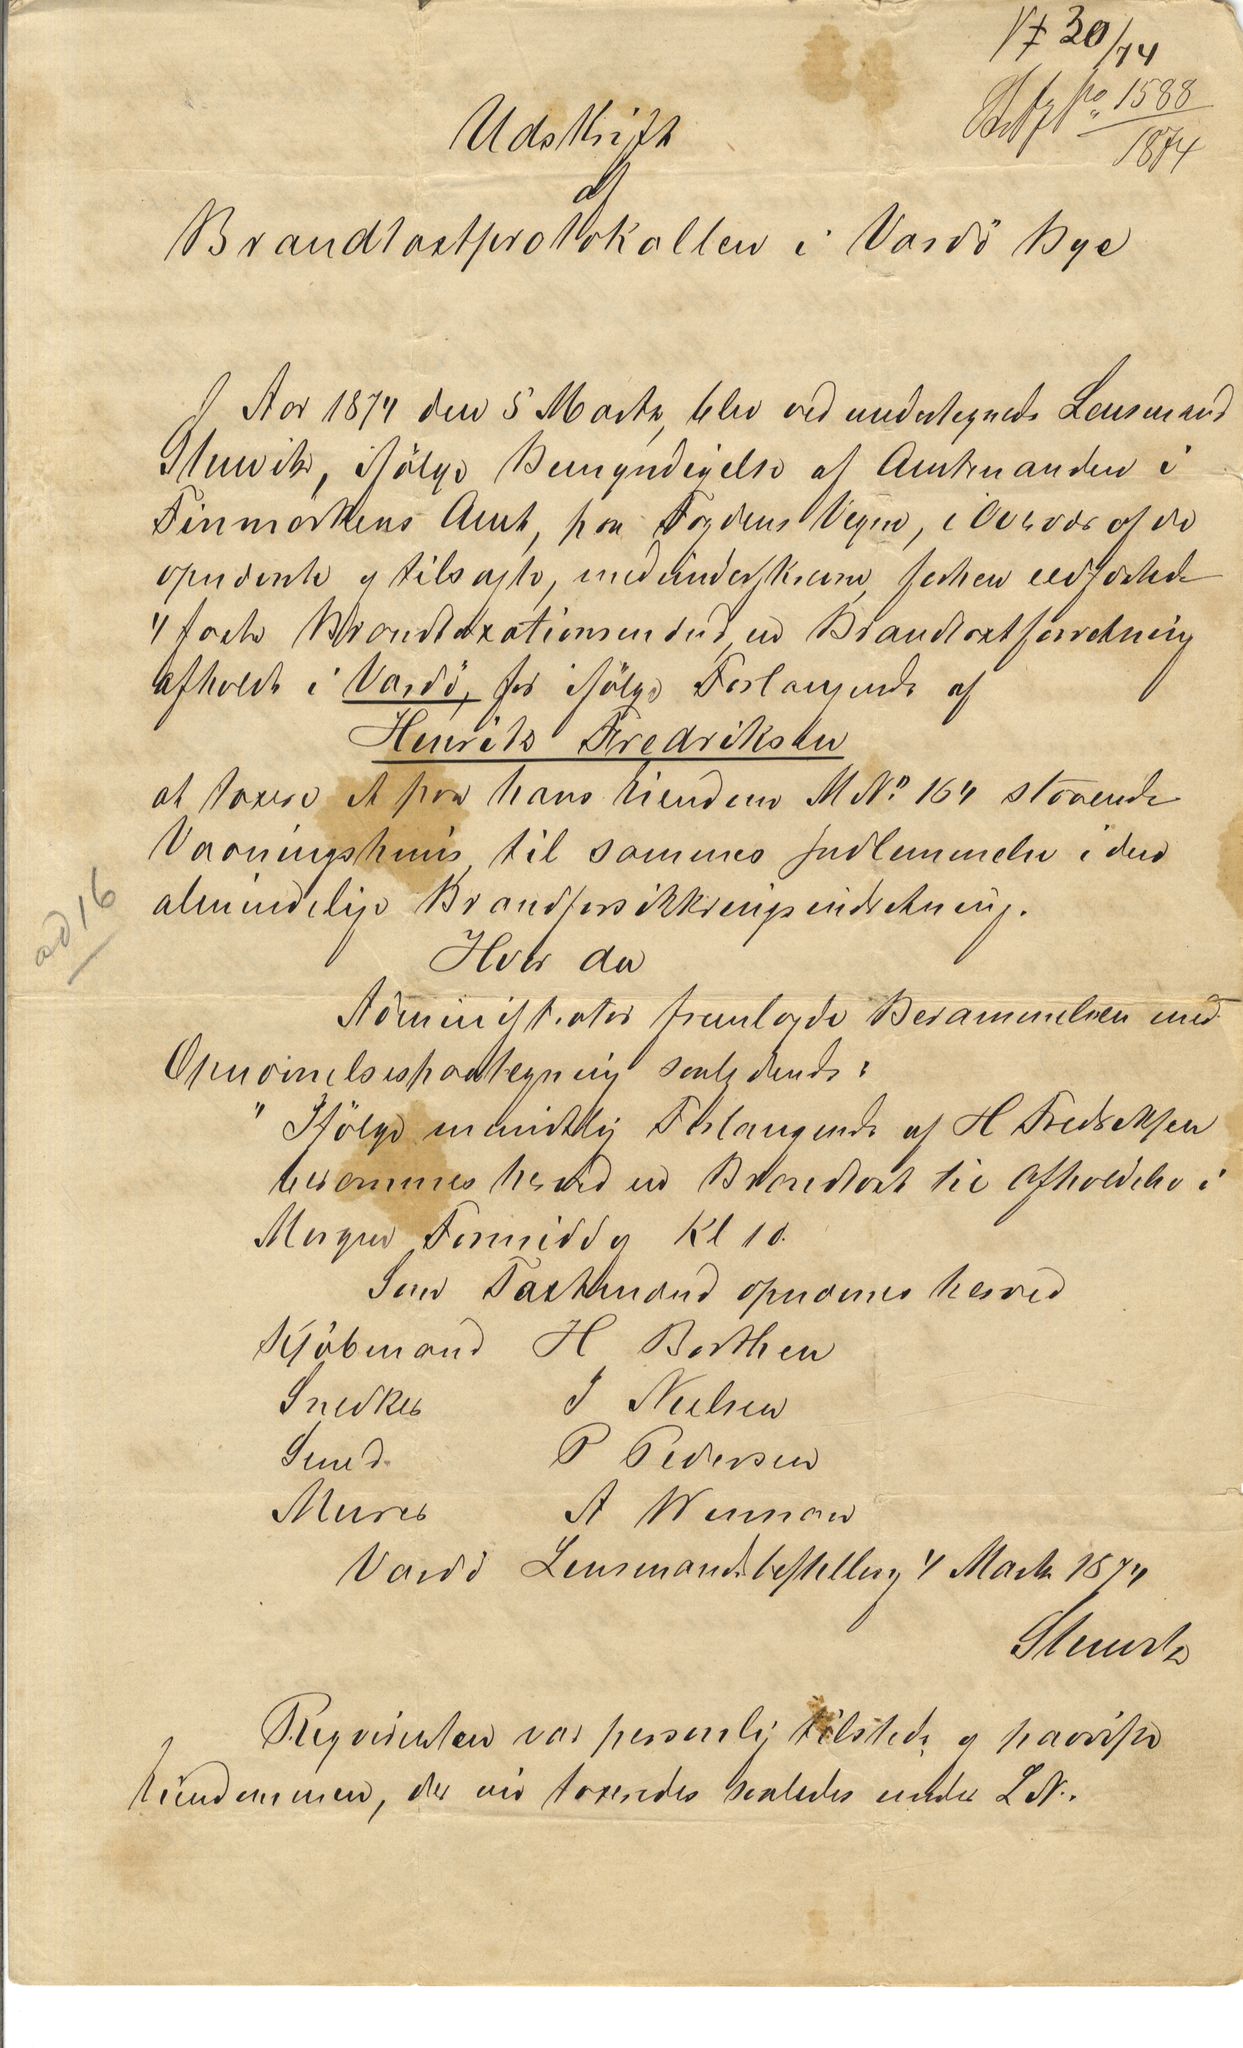 V7 30/74
1588
1874
Udskrift
af
Brandtaxtprotokollen i Vardö Bye
Aar 1874 den 5 Marts, blev ved undertegnede Lensmand
ifölge Bemyndigelse af Amtmanden i
Finmarkens Amt, paa Fogdens Vegne, i Overvær af de
opnævnte og tilsagte, medunderskrevne, forhen eedfæstede
4 faste Brandtaxationsmænd, en Brandtaxtforretning
afholdt i Vardö, for ifölge Forlangende af
Henrik Fredriksen
at taxere et paa hans Eiendom M No 164 staaende
Vaaningshuus, til sammes Indlemmelse i den
almindelige Brandforsikkringsindretning.
Hvor da
Administrator fremlagde Berammelsen med
Opnævnelsespaategning saalydende:
" Ifölge mundtlig Forlangende af H Fredriksen
berammes herved en Brandtaxt til Afholdelse i
Morgen Formiddag Kl 10.
Som Taxtmænd opnævnes herved
Kjöbmand H Borthen
Snedker J Nielsen
Smed P Pedersen
Murer A Wennow
Vardö Lensmandsbestilling 4 Marts 1874
Reqvirenten var personlig tilstede og paaviste
Eiendommen, der nu taxeredes saaledes under L N.
ad 16